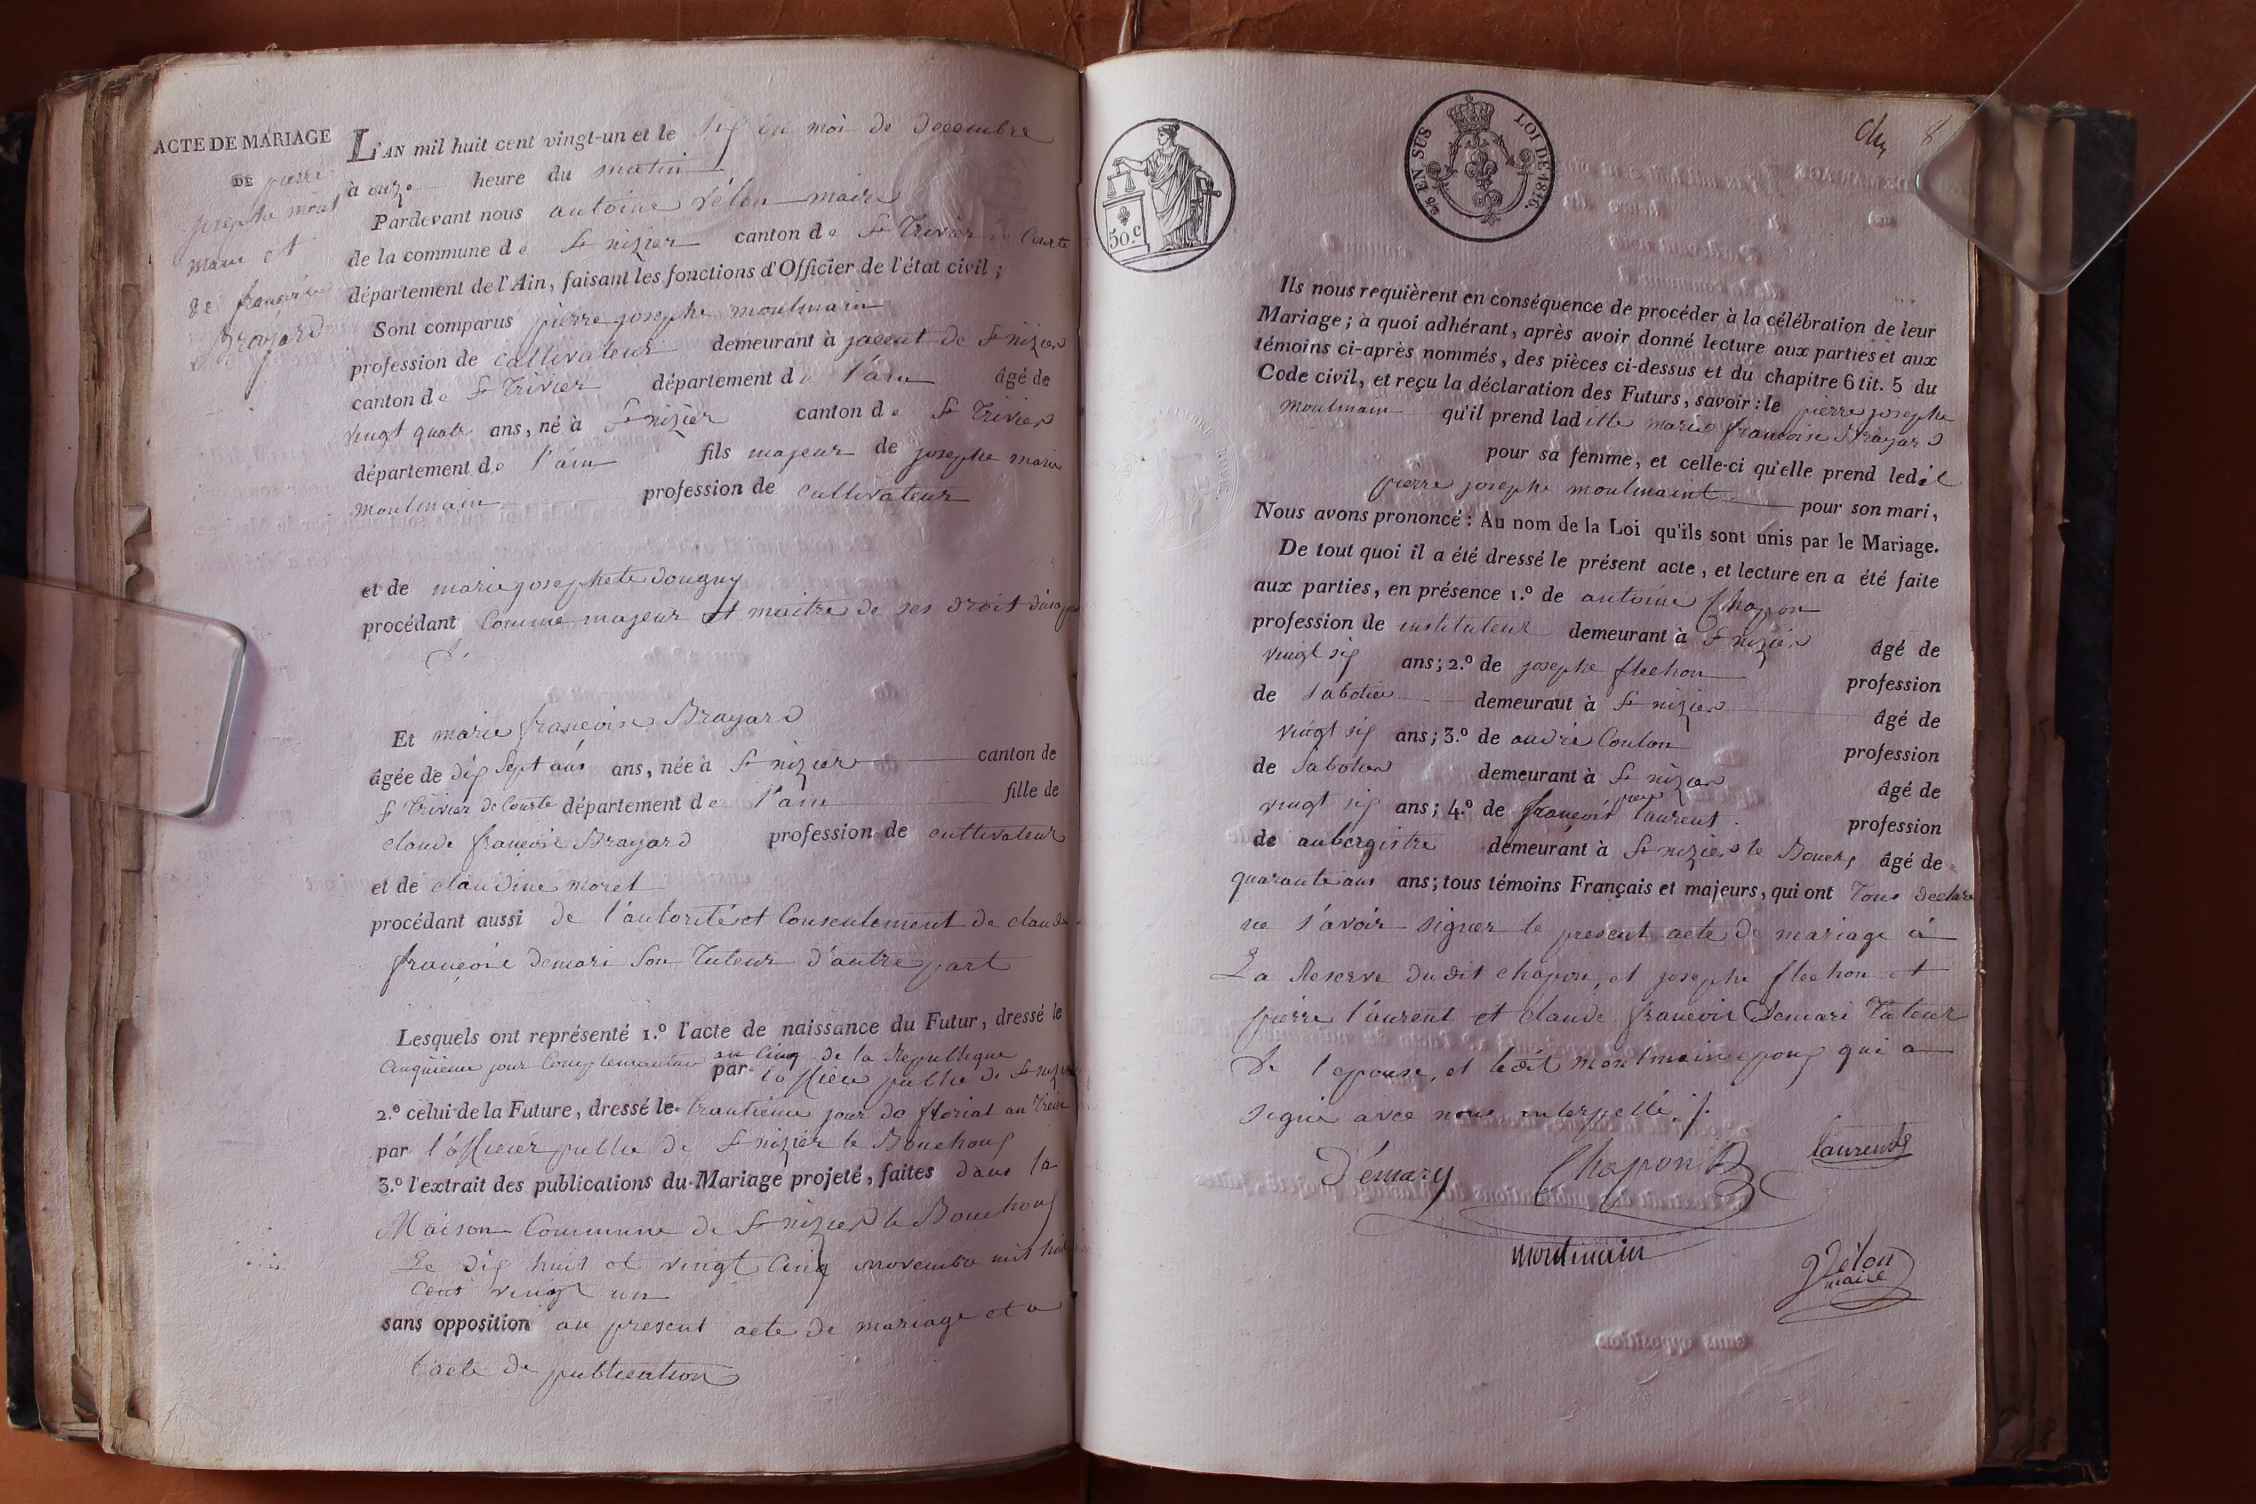 ACTE DE MARIAGE
DE pierre
josephe moul
main et
de françoise
Brayard
L'AN mil huit cent vingt-un et le six du moi de decembre
à onze heure du matin
Pardevant nous antoine Vélon maire
de la commune de St nizier canton de St Trivier de Courte
département de l'Ain, faisant les fonctions d'Officier de l'état civil;
Sont comparus pierre josephe moulmain
profession de cultivateur demeurant à St nizier
canton de St Trivier département de l'ain âgé de
vingt quatre ans, né à St nizier canton de St Trivier
département de l'ain fils majeur de josephe marie
moulmain profession de cultivateur
et de marie josephete dougny
procédant comme majeur et maitre de ses droit
Et marie françoise Brayard
âgée de dix sept ans ans, née à St nizier canton de
St Trivier de Courte département de l'ain fille de
claude françois Brayard profession de cultivateur
et de claudine moret
procédant aussi de l'autorité et Consentement de claude
françois demari Son Tuteur d'autre part
Lesquels ont représenté 1.º l'acte de naissance du Futur, dressé le
Cinquieme jour Complementaire an Cinq de la Republique
par l'officier public de St nizier
2.º celui de la Future, dressé le trantieme jour de florial an Treize
par l'officier public de St nizier le Bouchoux
3.º l'extrait des publications du Mariage projeté, faites dans la
Maison Commune de St nizier le Bouchoux
Le dix huit et vingt Cinq novembre mil huit
Cent vingt un
sans opposition au present acte de mariage et a
l'acte de publication
50.c
25 EN SUS LOI DE 1816.
8
Ils nous requièrent en conséquence de procéder à la célébration de leur
Mariage; à quoi adhérant, après avoir donné lecture aux parties et aux
témoins ci-après nommés, des pièces ci-dessus et du chapitre 6 tit. 5 du
Code civil, et reçu la déclaration des Futurs, savoir: le pierre josephe
moulmain qu'il prend laditte marie francoise Brayard
pour sa femme, et celle-ci qu'elle prend ledit
pierre josephe moulmaint pour son mari,
Nous avons prononcé: Au nom de la Loi qu'ils sont unis par le Mariage.
De tout quoi il a été dressé le présent acte, et lecture en a été faite
aux parties, en présence 1.º de antoine Chapon
profession de instituteur demeurant à St nizier âgé de
vingt six ans; 2.º de josephe flechon profession
de sabotier demeurant à St nizier âgé de
vingt six ans; 3.º de andré Coulon profession
de Sabotier demeurant à St nizier âgé de
vingt six ans; 4.º de françois pierre laurent profession
de aubergistre demeurant à St nizier le Bouchx âgé de
quarante ans ans; tous témoins Français et majeurs, qui ont Tous declaré
ne s'avoir signer le present acte de mariage à
La Reserve dudit chapon, et josephe flechon et
pierre l'aurent et Claude françois Demari Tuteur
de l'epouse, et ledit moulmain epoux qui a
signé avec nous interpellé ./.
D'émary Chapon laurent
moulmain
Vélon
maire